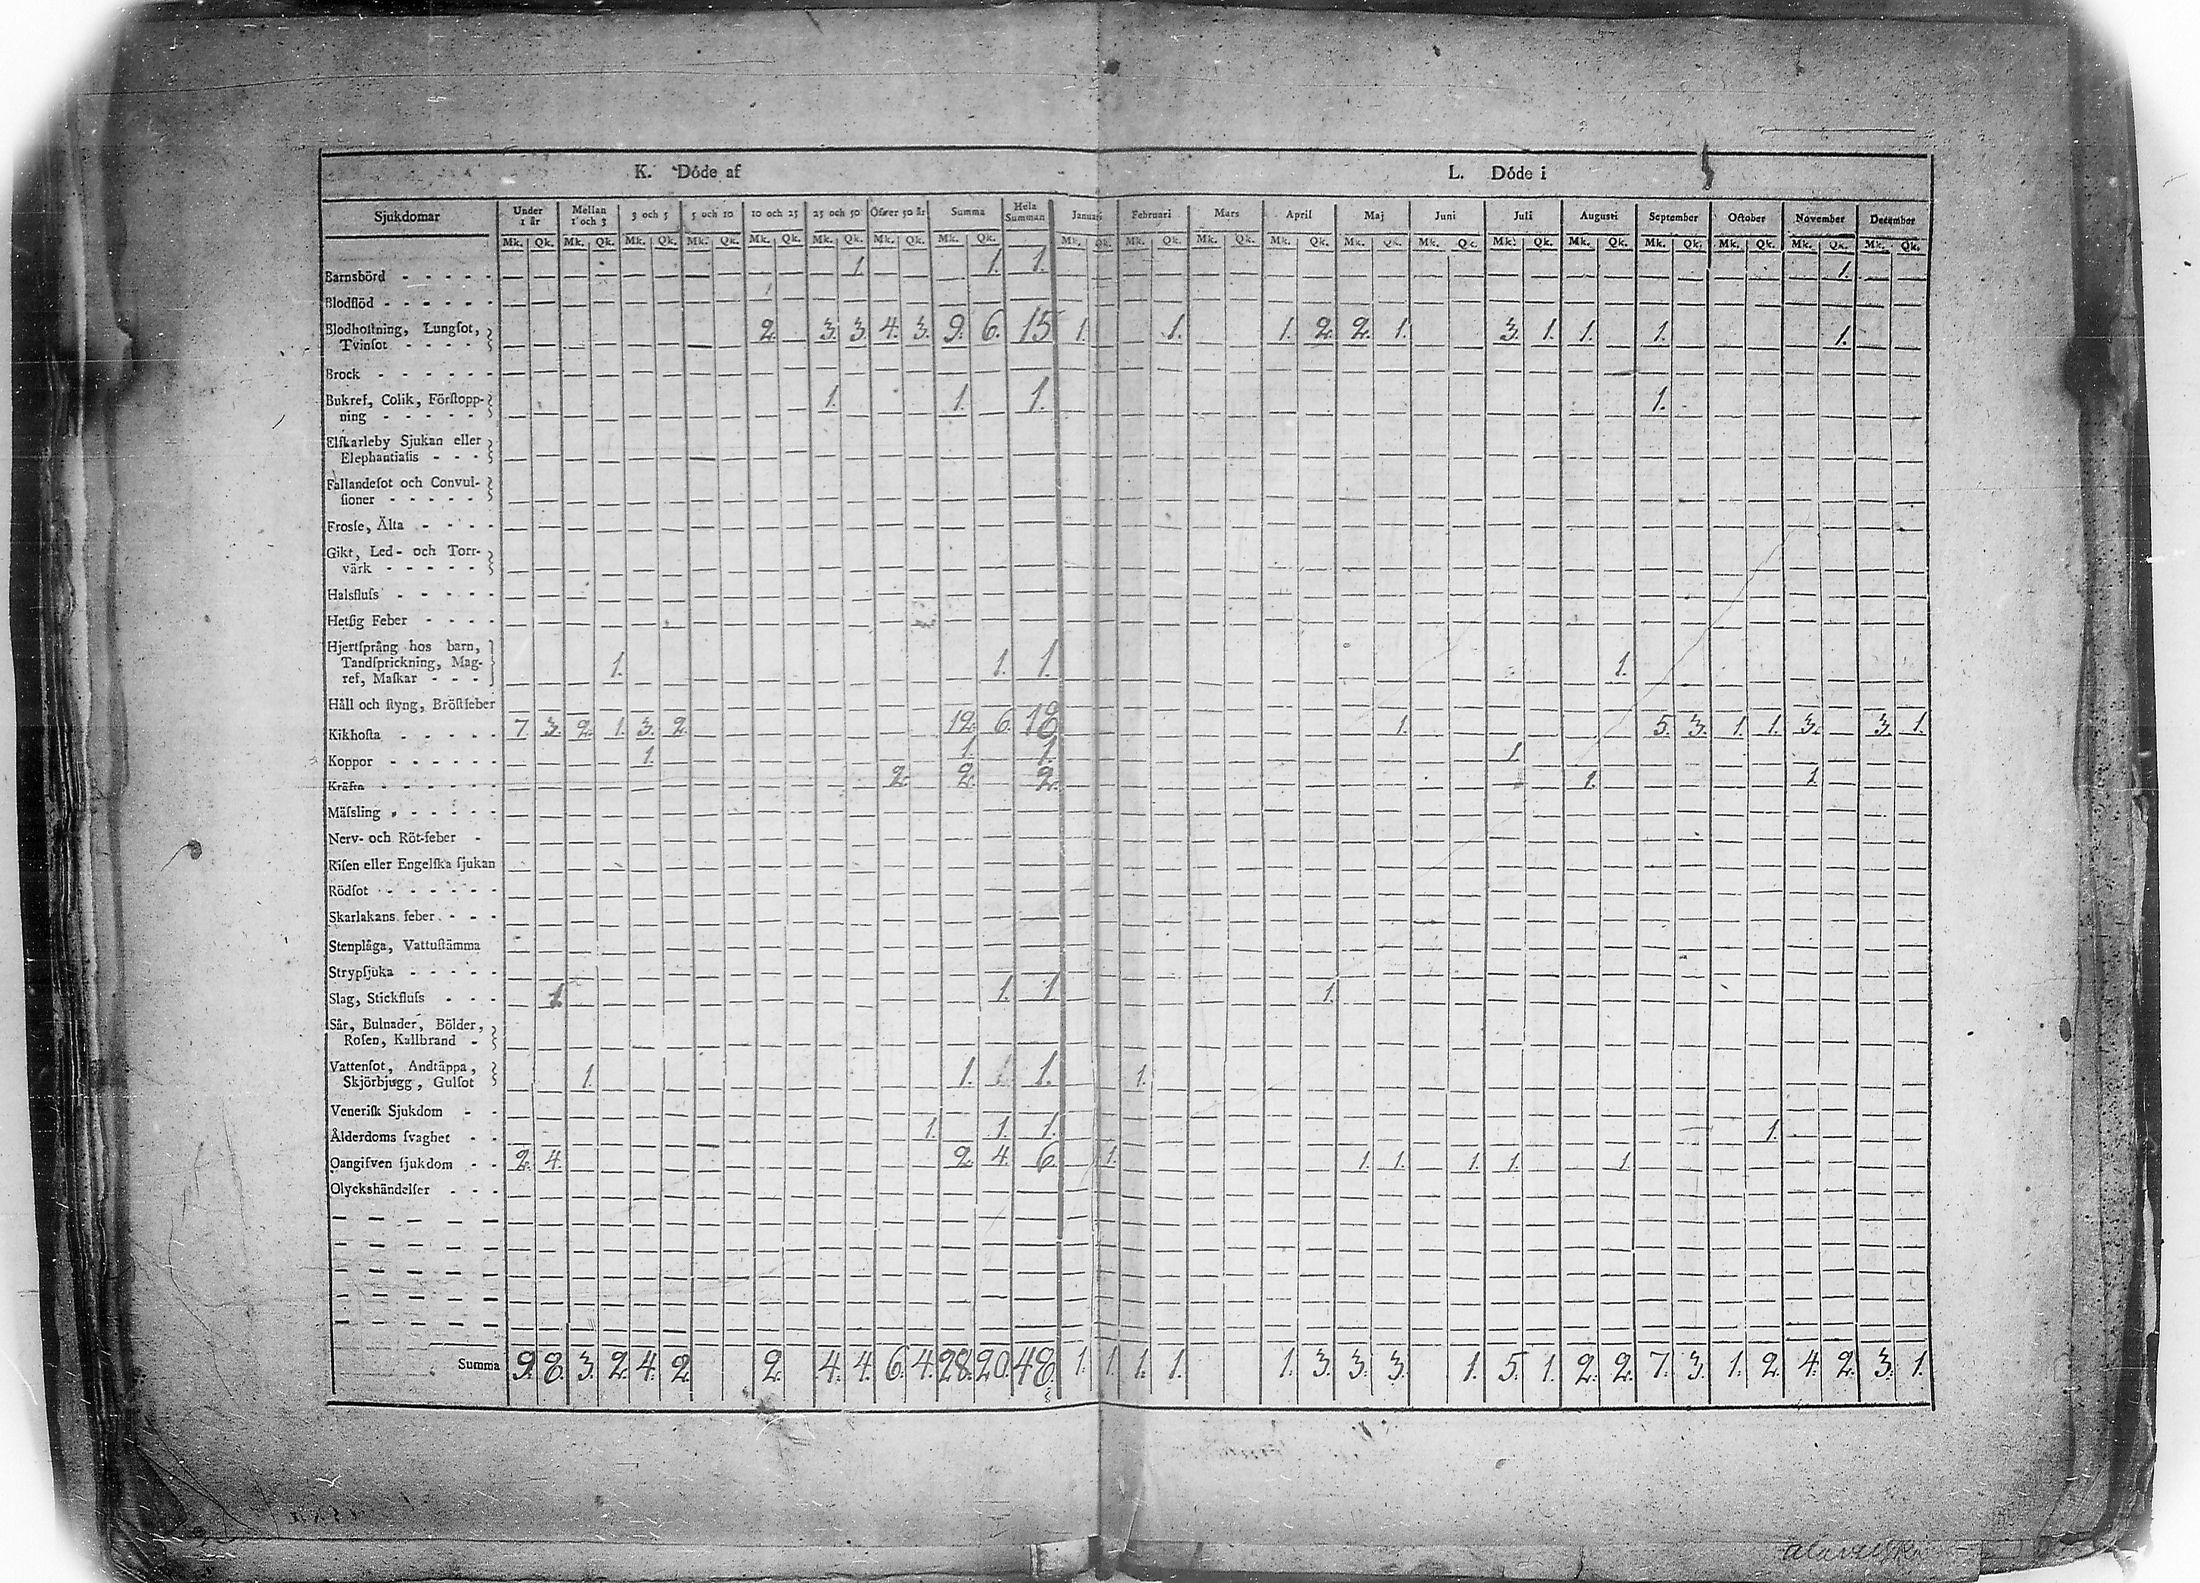 K. Döde af
L. Döde i
Sjukdomar Under 1 år Mellan 1 och 3 3 och 5 5 och 10 10 och 25 25 och 50 Öfwer 50 år Summa Hela Summan Januari Februari Mars April Maj Juni Juli Augusti September October November December
Mk. Qk. Mk. Qk. Mk. Qk. Mk. Qk. Mk. Qk. Mk. Qk. Mk. Qk. Mk. Qk. Mk. Qk. Mk. Qk. Mk. Qk. Mk. Qk. Mk. Qk. Mk. Qk. Mk. Qk. Mk. Qk. Mk. Qk. Mk. Qk. Mk. Qk. Mk. Qk.
Barnsbörd 1. 1. 1. 1.
Blodflöd
Blodhostning, Lungſot,
Tvinſot 2. 3. 3. 4. 3. 9. 6. 15 1. 1. 1. 2. 2. 1. 3. 1. 1. 1. 1.
Brock
Bukref, Colik, Förſtopp-
ning 1. 1. 1. 1.
Elſkarleby Sjukan eller
Elephantiaſis
Fallandeſot och Convul-
ſioner
Frosſe, Älta
Gikt, Led- och Torr-
värk
Halsfluſs
Hetſig Feber
Hjertſprång hos barn,
Tandſprickning, Mag-
ref, Maſkar 1. 1. 1. 1.
Håll och ſtyng, Bröſtfeber
Kikhoſta 7 3. 2. 1. 3. 2. 12. 6. 18 1. 5. 3. 1. 1. 3. 3. 1.
Koppor 1. 1. 1. 1.
Kräfta 2. 2. 2. 1. 1.
Mäſsling
Nerv- och Röt-feber
Riſen eller Engelſka ſjukan
Rödſot
Skarlakans feber
Stenplåga, Vattuſtämma
Strypſjuka
Slag, Stickfluſs 1. 1. 1 1.
Sår, Bulnader, Bölder,
Roſen, Kallbrand
Vattenſot, Andtäppa,
Skjörbjugg, Gulſot 1. 1. 1. 1.
Veneriſk Sjukdom
Ålderdoms ſvaghet 1. 1. 1. 1.
Oangifven ſjukdom 2. 4. 2. 4. 6. 1. 1. 1. 1. 1. 1.
Olyckshändelſer
Summa 9. 8. 3. 2. 4. 2. 2. 4. 4. 6. 4. 28. 20. 48. 1. 1. 1. 1. 1. 3. 3. 3. 1. 5. 1. 2. 2. 7. 3. 1. 2. 4. 2. 3. 1.